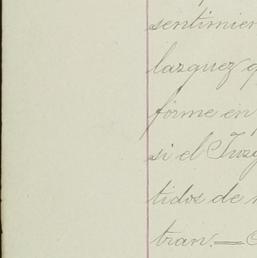 sentimien
lazquez q
forme en
si el Juzg
tidos de
tran.—